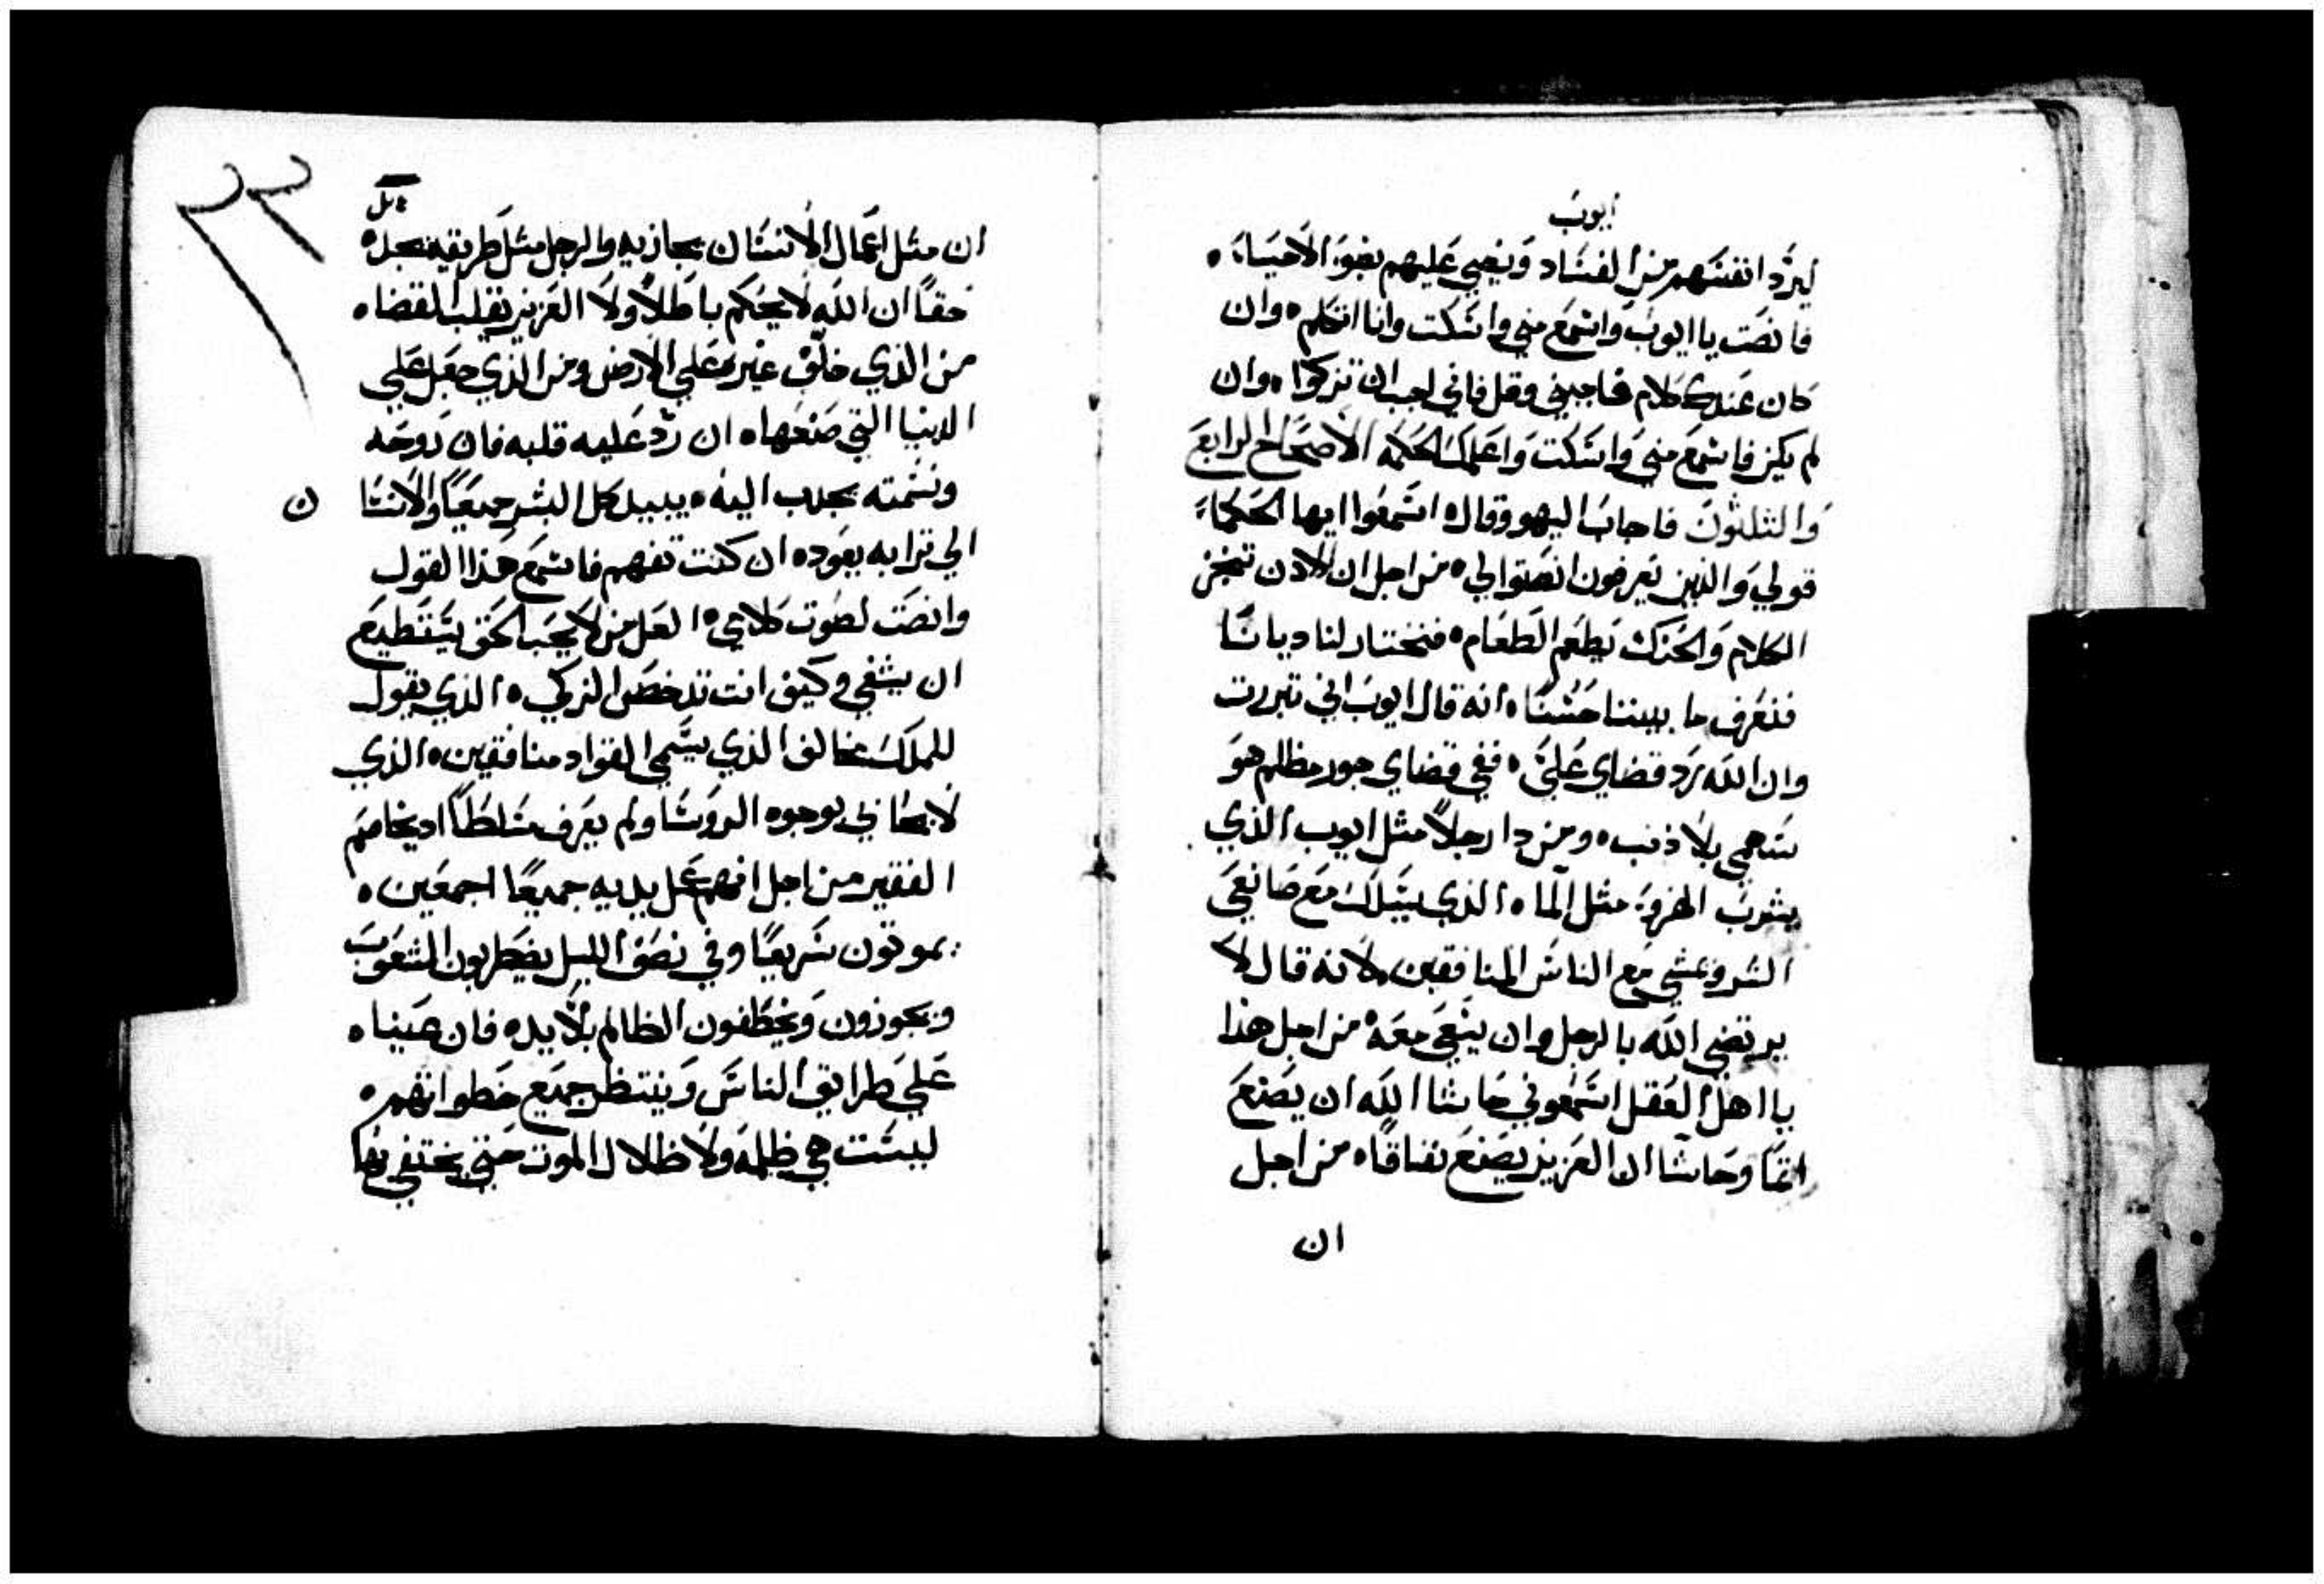 ايوب
ليرد انفسهم من الفساد ويضي عليهم بضوء الاحياء ه
فانصت يا ايوب واسمع مني واسكت وانا اتكلم ه وان
كان عندك كلام فاجيبني وقل فاني احب ان تزكوا ه وان
لم يكن فاسمع مني واسكت واعلمك الحكمه الاصحاح الرابع
والثلثون فاجاب اليهو وقال ه اسمعوا ايها الحكماء
قولي والذين يعرفون انصتوا لي ه من اجل ان الادن تمخز
الكلام والحنك يطعم الطعام ه فنختار لنا ديانا
فنعرف ما بيننا حسنا ه انه قال ايوب اني تبررت
وان الله رد قضاي علي ه ففي قضاي جور مظلم هو
سهمي بلا ذنب ه ومن دا رجلا مثل ايوب الذي
يشرب الهزوء مثل الما ه الذي يسلك مع صانعي
الشر ومشي مع الناس المنافقين ه لانه قال لا
يرتضي الله بالرجل وان يسعي معه ه من اجل هذا
يا اهل العقل اسمعوني حاشا الله ان يصنع
اثما وحاشا ان العزيز يصنع نفاقا ه من اجل
ان
٢٢
ان مثل اعمال الانسان يجازيه والرجل مثل طريقه يجده
حقا ان الله لا يحكم باطلا ولا العزيز يقلب القضا ه
من الذي خلق غيره علي الارض ومن الذي جعل علي
الدنيا التي صنعها ه ان رد عليه قلبه فان روحه
ونسمته يجدب اليه ه يبيد كل البشر جميعا والانسا ن
الي ترابه يعود ه ان كنت تفهم فاسمع هذا القول
وانصت لصوت كلامي ه العل من لا يحب الحق يستطيع
ان يشفي وكيف انت تدحض الزكي ه الذي يقول
للملك مخالف الذي يسمي القواد منافقين ه الذي
لا يحابي بوجوه الروسا ولم يعرف مسلطا اد يخاصم
الفقير من اجل انهم عمل يديه جميعا اجمعين ه
يموتون سريعا وفي نصف الليل يضطربون الشعوب
ويجوزون ويخطفون الظالم بلا يد ه فان عيناه
علي طرايق الناس وينتظر جميع خطواتهم ه
ليست هي ظلمه ولا ظلال الموت حتي يختفي بها